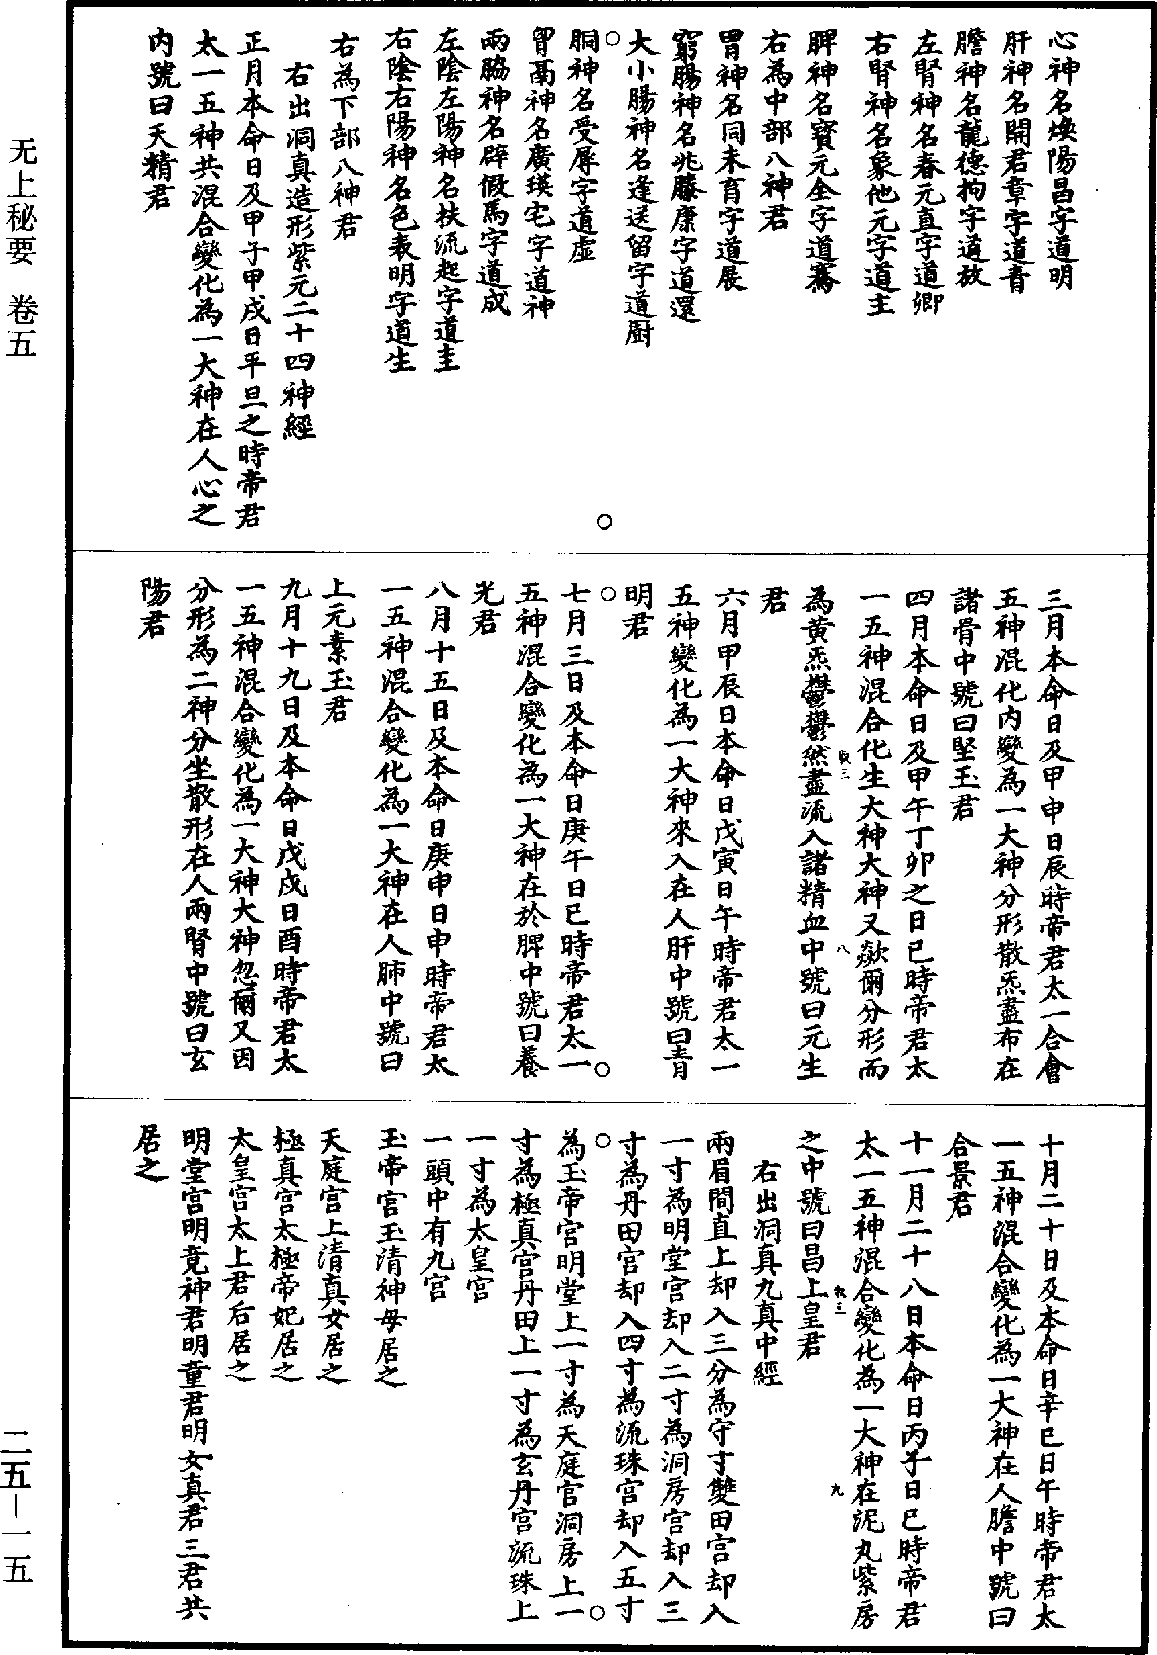 心神名煥陽昌字道明
肝神名開君章字道青
膽神名龍德拘字道放
左腎神名春元直字道卿
右腎神名象他元字道主
脾神名寶元全字道騫
右為中部八神君
胃神名同未育字道展
窮腸神名兆滕康字道還
大小腸神名逢送留字道厨
胴神名受厚字道虛
胷鬲神名廣瑛宅字道神
兩脇神名辟假馬字道成
左陰左陽神名扶流起字道圭
右陰右陽神名色表明字道生
右為下部八神君
右出洞真造形紫元二十四神經
正月本命日及甲子甲戌日平旦之時帝君
太一五神共混合變化為一大神在人心之
内號曰天精君
三月本命日及甲申日辰時帝君太一合會
五神混化内變為一大神分形散炁盡布在
諸骨中號曰堅玉君
四月本命日及甲午丁卯之日巳時帝君太
一五神混合化生大神大神又歘爾分形而
為黃炁鬱鬱然盡流入諸精血中號曰元生
君
六月甲辰日本命日戊寅日午時帝君太一
五神變化為一大神來入在人肝中號曰青
明君
七月三日及本命日庚午日巳時帝君太一
五神混合變化為一大神在於脾中號曰養
光君
八月十五日及本命日庚申日申時帝君太
一五神混合變化為一大神在人肺中號曰
上元素玉君
九月十九日及本命日戊戌日酉時帝君太
一五神混合變化為一大神大神忽爾又因
分形為二神分坐散形在人兩腎中號曰玄
陽君
十月二十日及本命日辛巳日午時帝君太
一五神混合變化為一大神在人膽中號曰
合景君
十一月二十八日本命日丙子日巳時帝君
太一五神混合變化為一大神在泥丸紫房
之中號曰昌上皇君
右出洞真九真中經
兩眉間直上却入三分為守寸雙田宫却入
一寸為明堂宫却入二寸為洞房宫却入三
寸為丹田宫却入四寸為流珠宫却入五寸
為玉帝宫明堂上一寸為天庭宫洞房上一
寸為極真宫丹田上一寸為玄丹宫流珠上
一寸為太皇宫
一頭中有九宫
玉帝宫玉清神母居之
天庭宫上清真女居之
極真宫太極帝妃居之
太皇宫太上君后居之
明堂宫明竟神君明童君明女真君三君共
居之
无上秘要 卷五
二五－一五